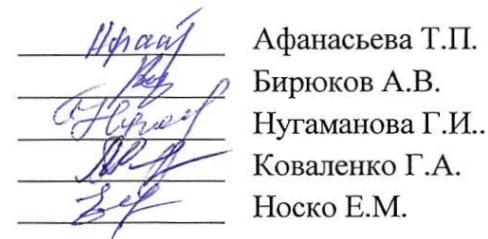 Афанасьева Т.П.
Бирюков А.В.
Нугаманова Г.И..
Коваленко Г.А.
Носко Е.М.